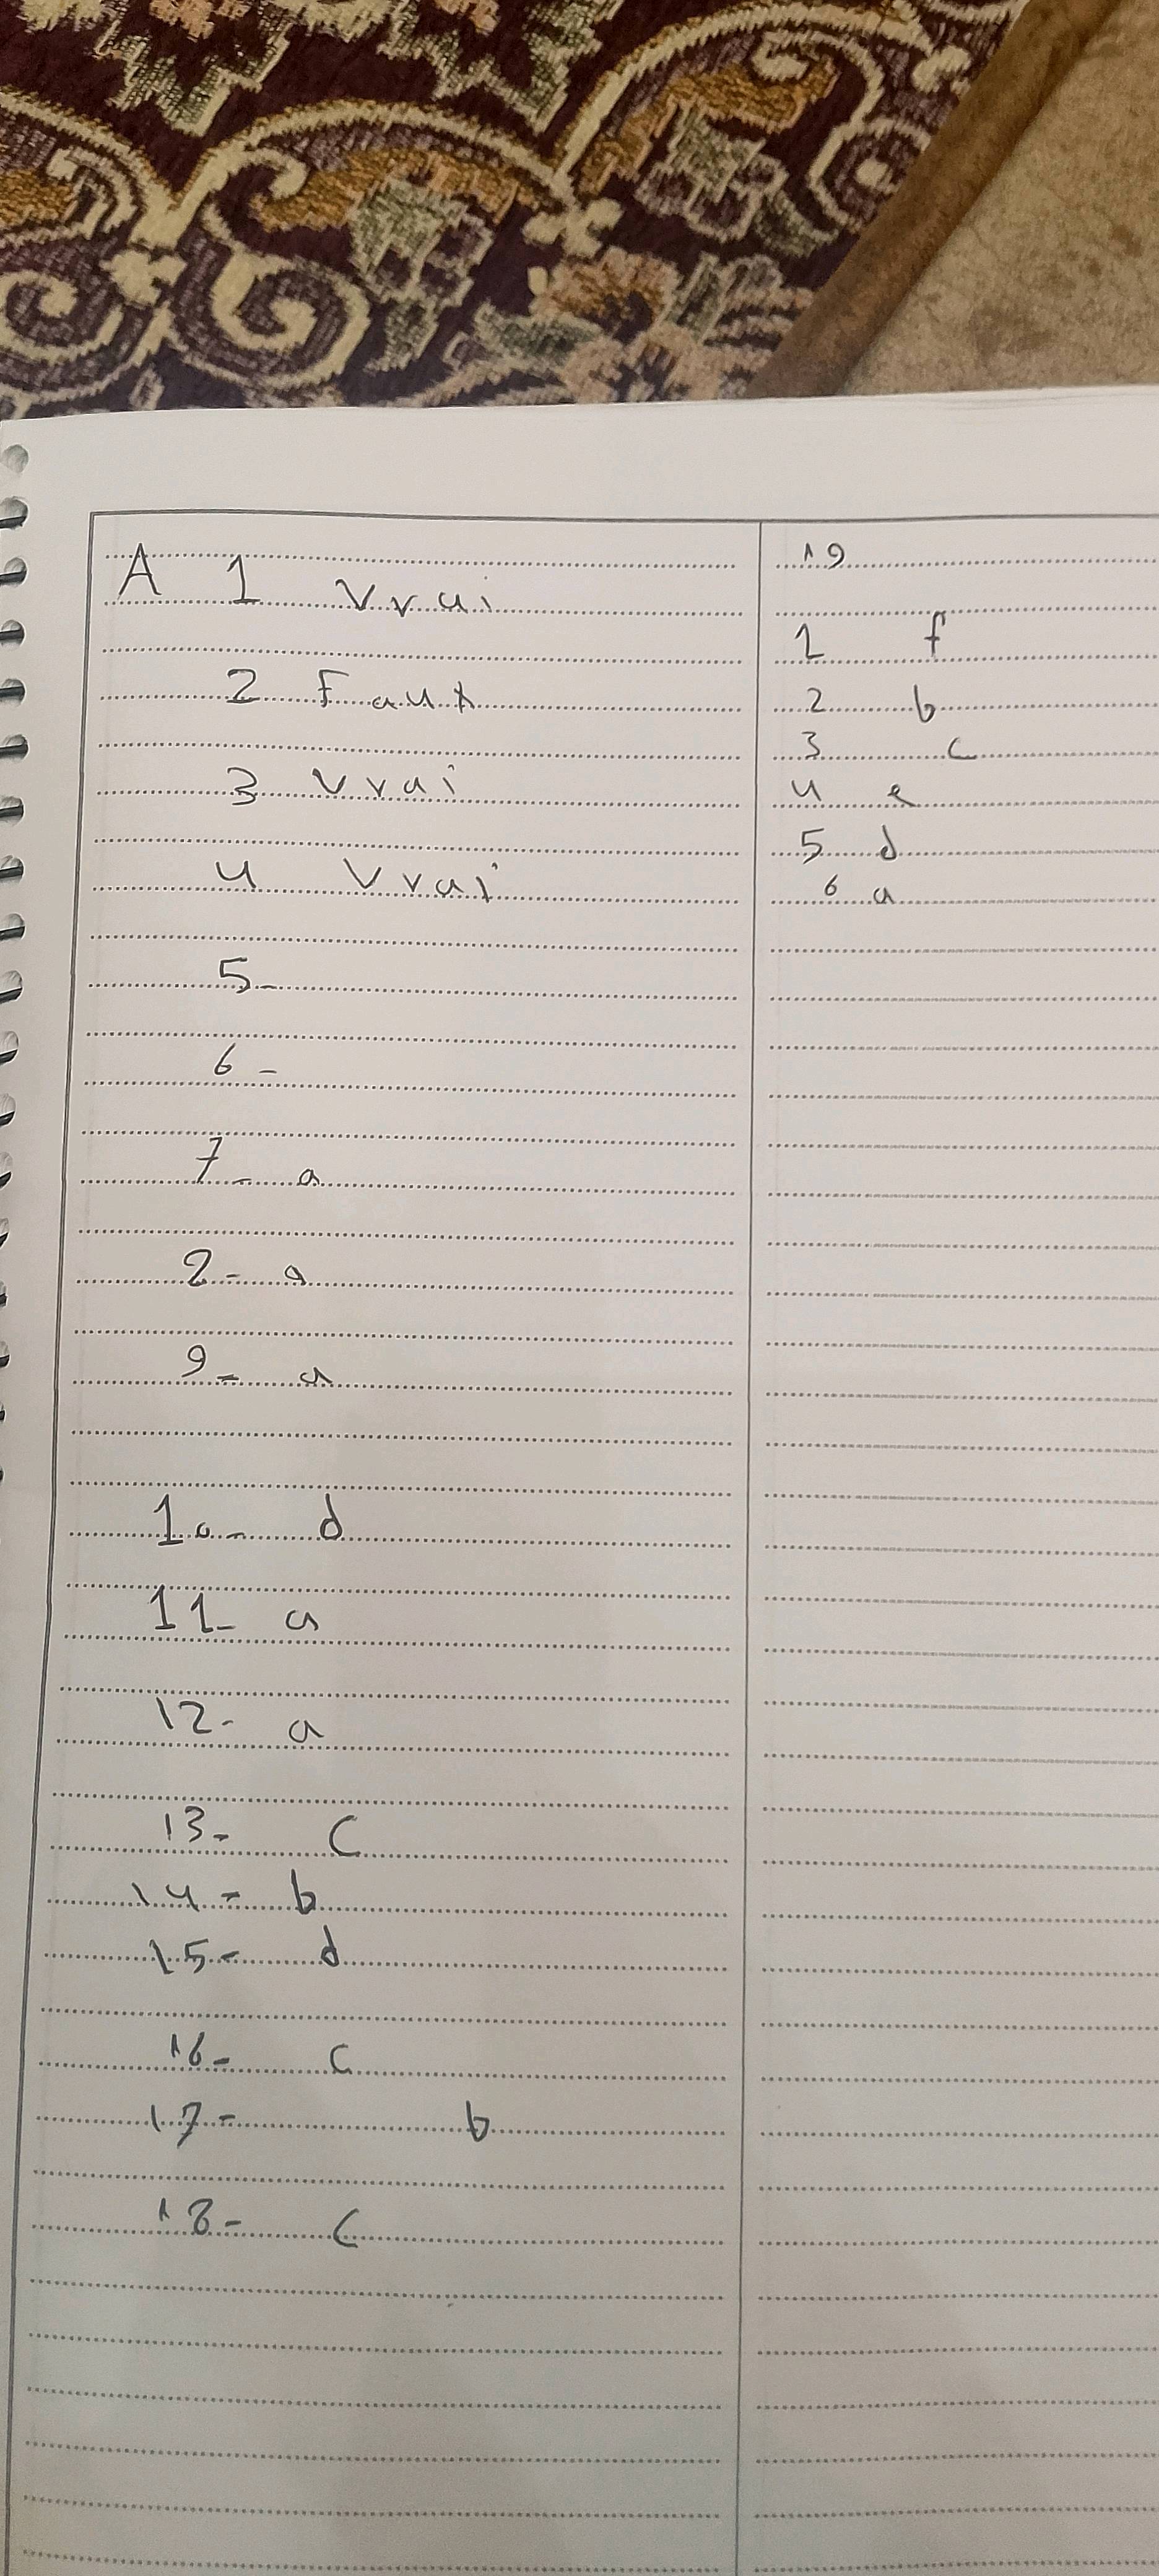 A 1 Vrai
2 Faux
3 Vrai
4 Vrai
5-
6-
7- a
2- a
9- a
10- d
11- a
12- a
13- c
14- b
15- d
16- c
17- b
18- c
19
1 f
2 b
3 c
4 e
5 d
6 a